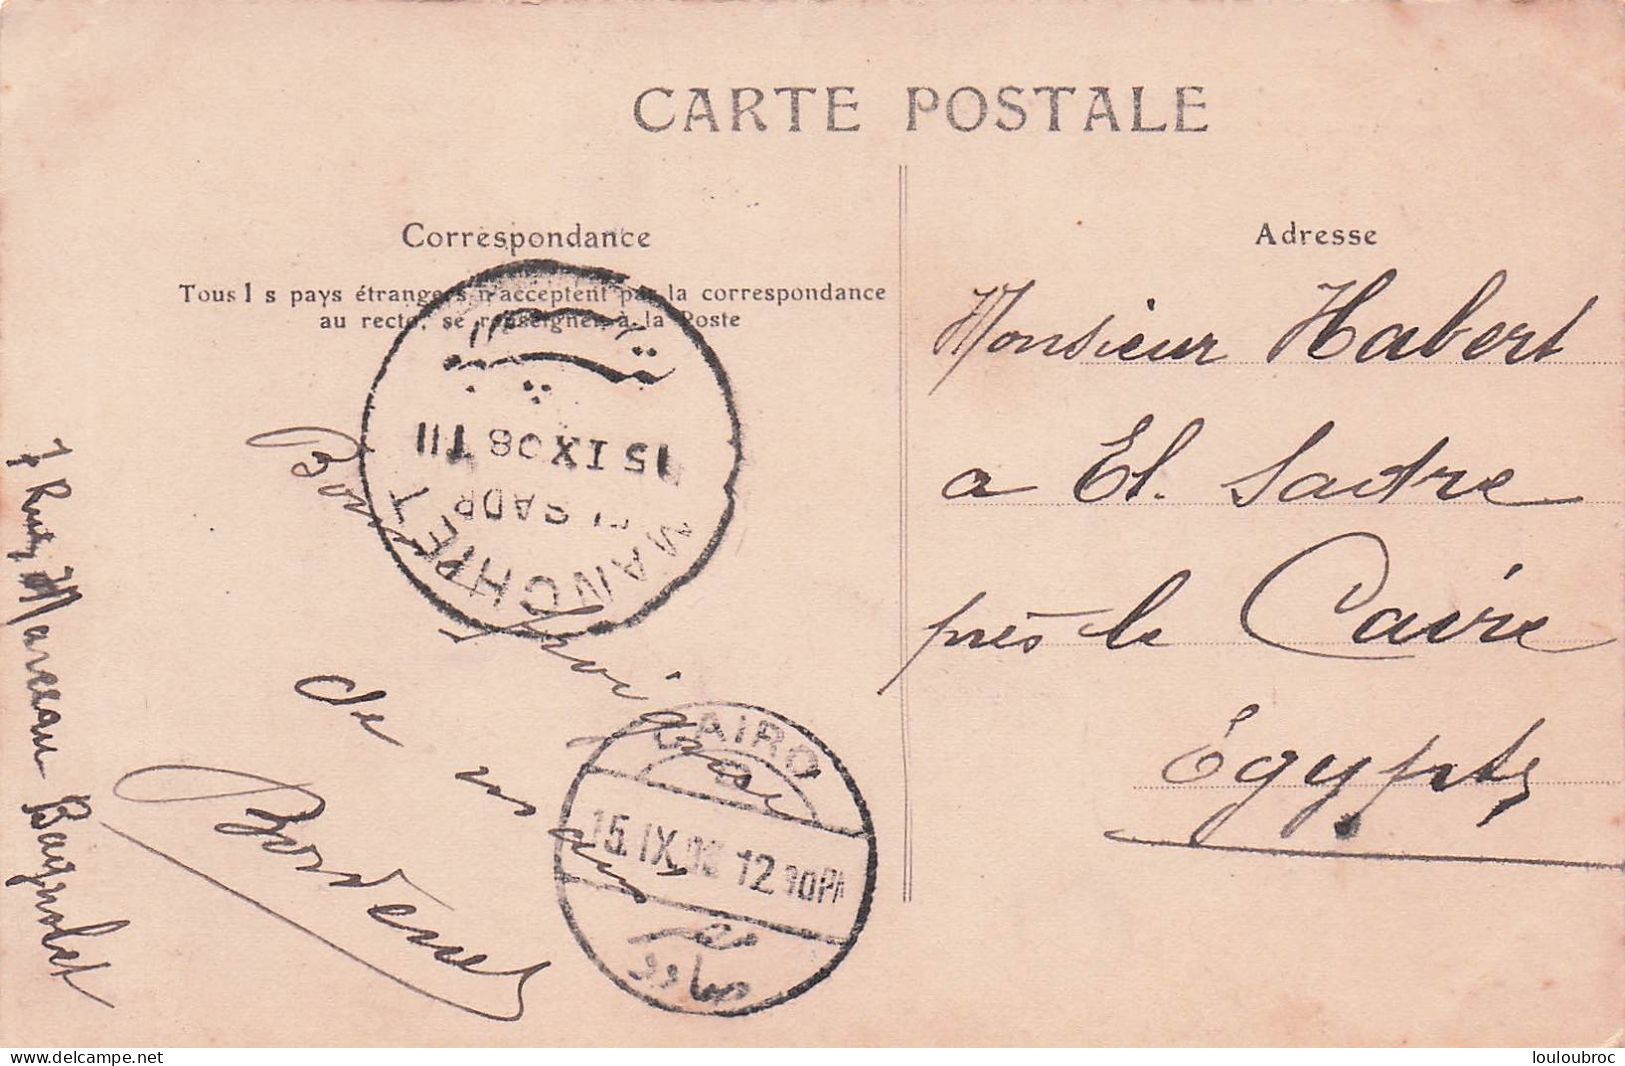 CARTE POSTALE
Correspondance
Tous l s pays étrangers n'acceptent pas la correspondance
au recto, se renseigner à la Poste
Adresse
Monsieur Habert
a El. Sadre
près le Caire
Égypte
Bon
de nos amis
7 Marceau Bagnolet
MANCHIET
EL SADR
15 IX 08 T II
CAIRO
15.IX.08 12 PM
مصر
صادر
delcampe.net
louloubroc